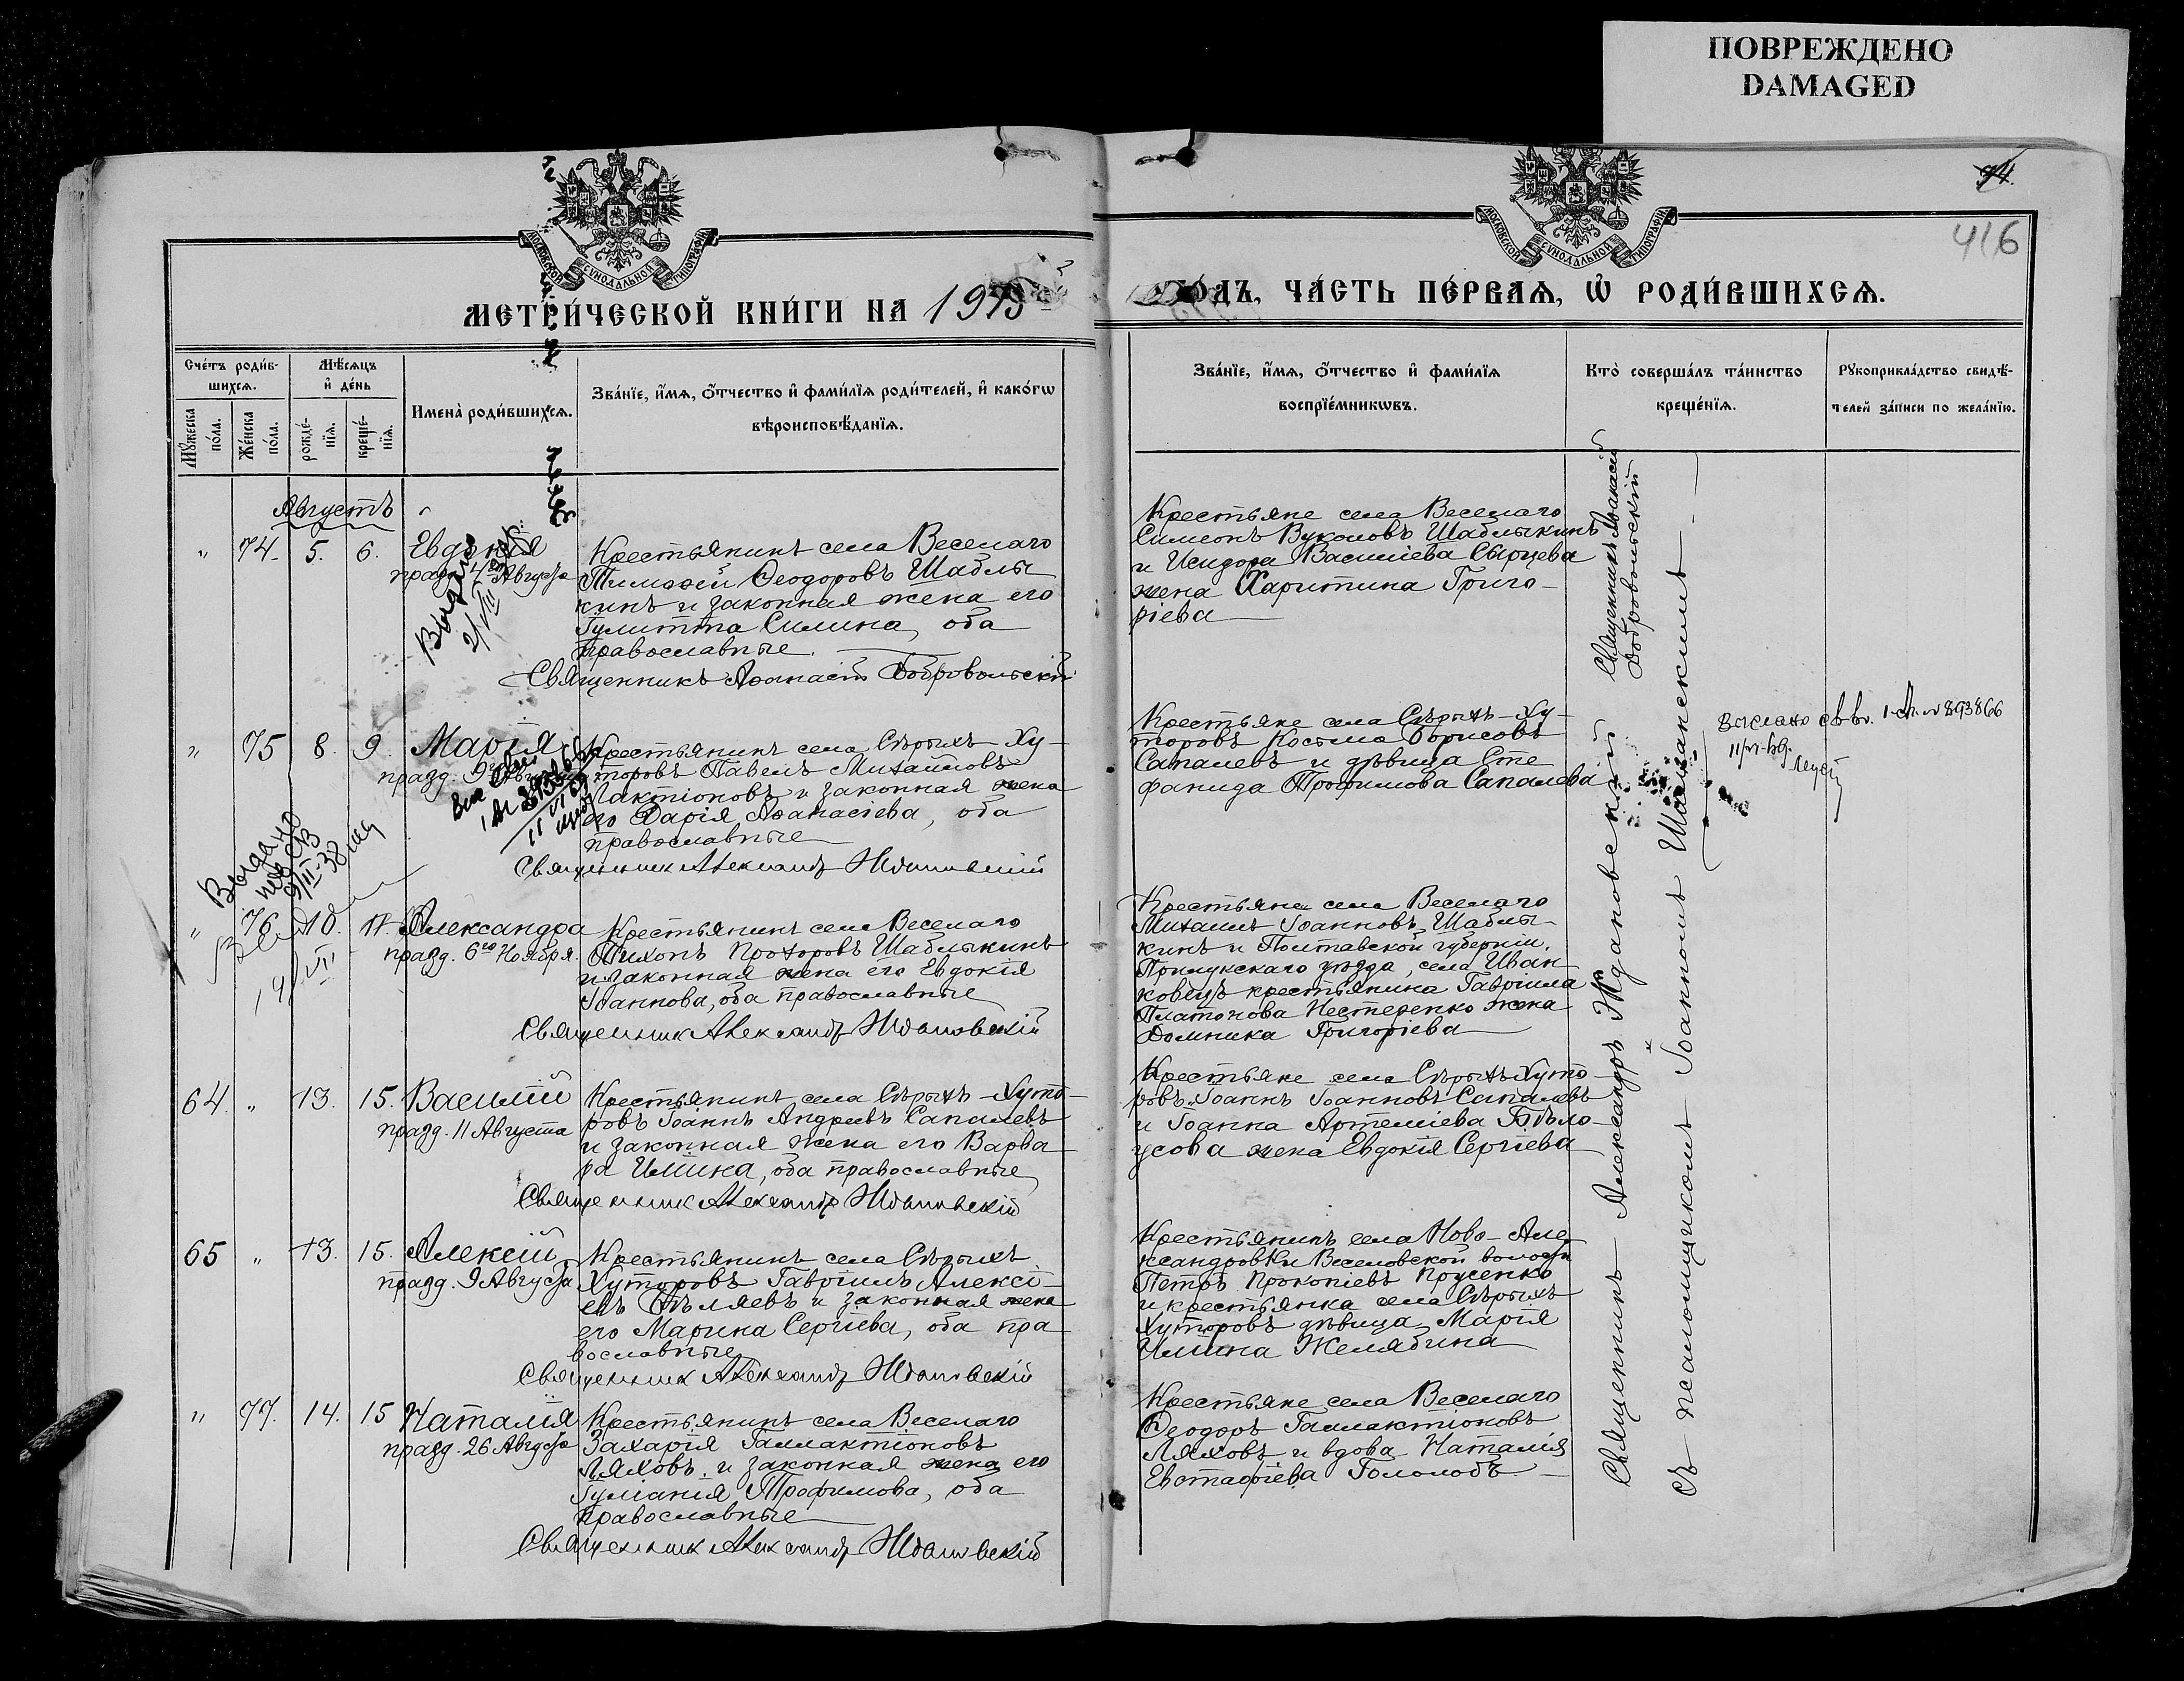 ПОВРЕЖДЕНО
DAMAGED
94.
416
МОСКОВСКОЙ СУНОДАЛЬНОЙ ТИПОГРАФІИ
МОСКОВСКОЙ СУНОДАЛЬНОЙ ТИПОГРАФІИ
МЕТРИ́ЧЕСКОЙ КНИ́ГИ НА
ГО́ДЪ, ЧА́СТЬ ПЕ́РВАѦ, Ѡ РОДИ́ВШИХСѦ.
Сче́тъ роди́в-
шихсѧ.
Мꙋ́жеска
по́ла.
Же́нска
по́ла.
Мѣ́сѧцъ
и҆ де́нь
рожде́-
нїѧ.
креще́-
нїѧ.
Имена̀ роди́вшихсѧ.
Зва́нїе, и҆́мѧ, ѻ҆́тчество и҆ фами́лїѧ роди́телей, и҆ како́гѡ
вѣроисповѣ́данїѧ.
Зва́нїе, и҆́мѧ, ѻ҆́тчество и҆ фами́лїѧ
воспрїе́мникѡвъ.
Кто̀ соверша́лъ та́инство
креще́нїѧ.
Рꙋкоприкла́дство свидѣ́-
телей за́писи по жела́нїю.
Августъ
" 74. 5. 6. Евдокія
празд. 4го Августа
Крестьянинъ села Веселаго
Тимофей Ѳеодоровъ Шаблы
кинъ и законная жена его
Іулитта Силина, оба
православные.
Священникъ Аѳанасій Добровольскій
Крестьяне села Веселаго
Симеонъ Вуколовъ Шаблыкинъ
и Исидора Василіева Сырцева
жена Харитина Григо-
ріева
Священникъ Аѳанасій
Добровольскій
" 75 8. 9. Марія
празд. 9го Августа
Крестьянинъ села Сѣрыхъ-Ху-
торовъ Павелъ Михайловъ
Лактіоновъ и законная жена
его Дарія Аѳанасіева, оба
православные
Священник Александр Ждановскій
Крестьяне села Сѣрыхъ-Ху-
торовъ Косьма Борисовъ
Сапалевъ и дѣвица Сте
фанида Трофимова Сапалева
Выслано св. во. 1-АЛ № 893866
11/VI-69.
Выдано
нов св
9/II-38
" 76 10. 11. Александра
празд. 6го Ноября.
Крестьянинъ села Веселаго
Тихонъ Прохоровъ Шаблыкинъ
и законная жена его Евдокія
Іоаннова, оба православные
Священник Александр Ждановскій
Крестьяне села Веселаго
Михаилъ Іоанновъ Шаблы-
кинъ и Полтавской губерніи,
Прилукскаго уѣзда, села Иван
ковецъ крестьянина Гавріила
Платонова Нестеренко жена
Домника Григоріева
64. " 13. 15. Василій
празд. 11 Августа
Крестьянинъ села Сѣрыхъ-Хуто-
ровъ Іоаннъ Андреевъ Сапалевъ
и законная жена его Варва
ра Илиина, оба православные
Священник Александр Ждановскій
Крестьяне села Сѣрыхъ Хуто-
ровъ Іоаннъ Іоанновъ Сапалевъ
и Іоанна Артеміева Бѣло-
усова жена Евдокія Сергіева
65 " 13. 15. Алексій
празд. 9 Августа
Крестьянинъ села Сѣрыхъ
Хуторовъ Гавріилъ Алексі-
евъ Бѣляевъ и законная жена
его Марина Сергіева, оба пра
вославные
Священник Александр Ждановскій
Крестьянинъ села Ново-Але-
ксандровки Веселовской волости
Петръ Прокопіевъ Прусенко
и крестьянка села Сѣрыхъ
Хуторовъ дѣвица Марія
Илиина Желябина
" 77. 14. 15 Наталія
празд. 26 Августа
Крестьянинъ села Веселаго
Захарія Галлактіоновъ
Ляховъ и законная жена его
Іуліанія Трофимова, оба
православные
Священник Александр Ждановскій
Крестьяне села Веселаго
Ѳеодоръ Галлактіоновъ
Ляховъ и вдова Наталія
Евстафіева Гололобъ
Священникъ Александръ Ждановскій
съ псаломщикомъ Іоанномъ